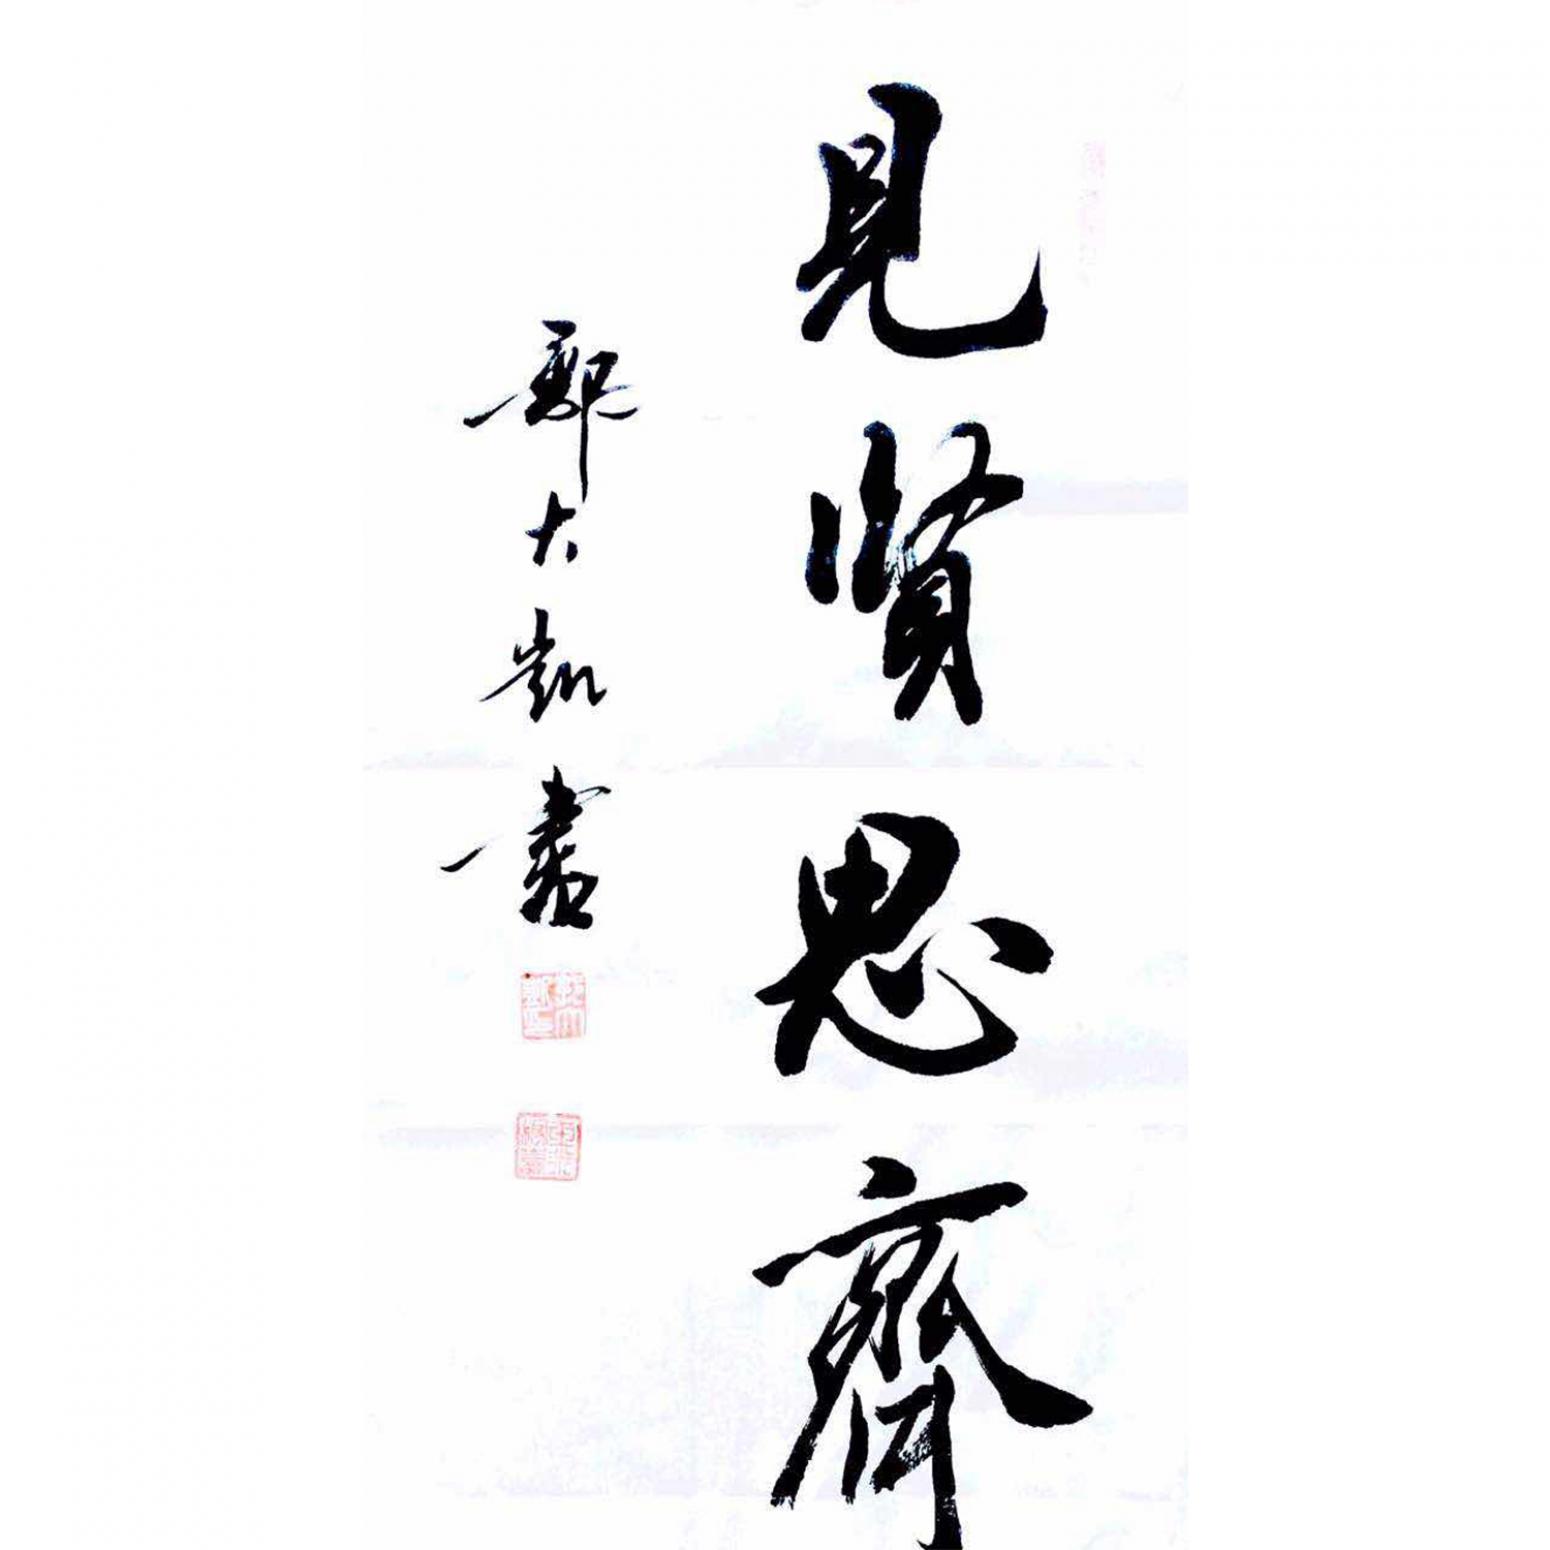 見賢思齊
大凱書